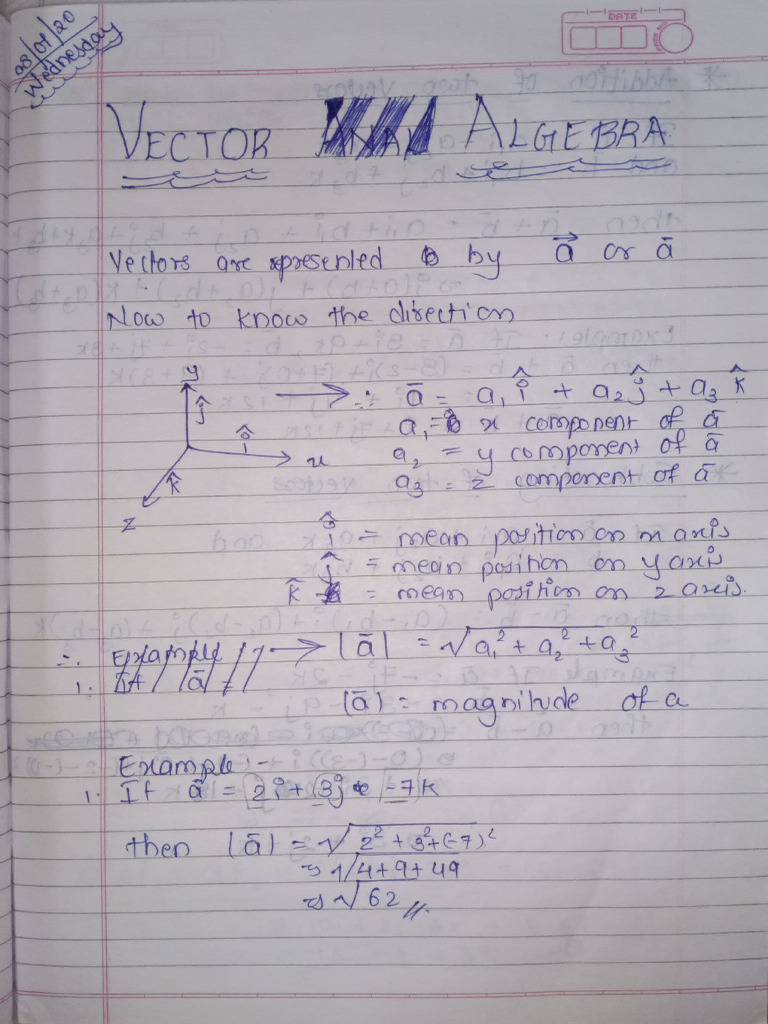 DATE
08/07/20
Wednesday
VECTOR ALGEBRA
Vectors are represented by a⃗ or ā
Now to know the direction
y
ĵ
î
x
k̂
z
→ ∴ ā = a₁ î + a₂ ĵ + a₃ k̂
a₁ = x component of ā
a₂ = y component of ā
a₃ = z component of ā
î = mean position on x axis
ĵ = mean position on y axis
k̂ = mean position on z axis.
∴ Example → |ā| = √a₁² + a₂² + a₃²
1. If |ā|
|ā| = magnitude of a
Example :-
1. If ā = 2i + 3j -7k
then |ā| = √2² + 3² + (-7)²
⇒ √4+9+49
⇒ √62 //